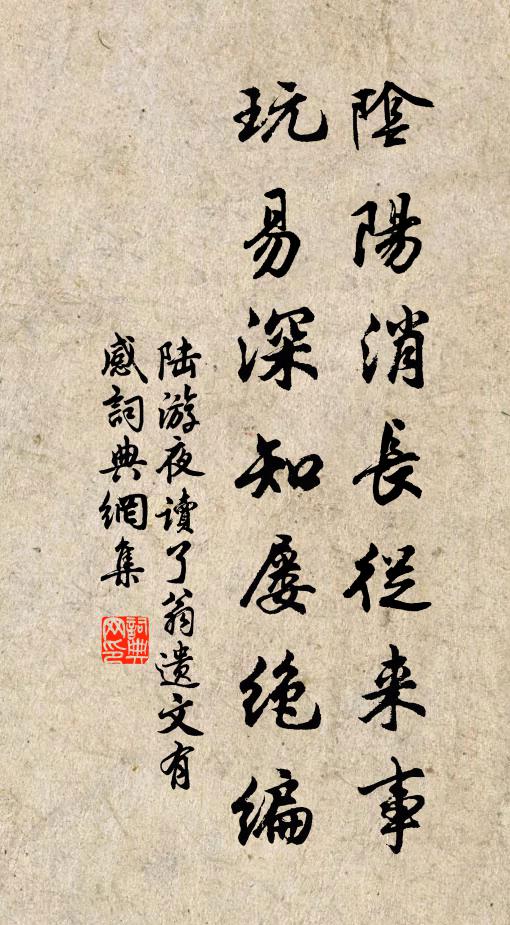 陰陽消長從来事
玩易深知屡绝编
陆游夜读了翁遗文有
感詞典網集
詞典网印